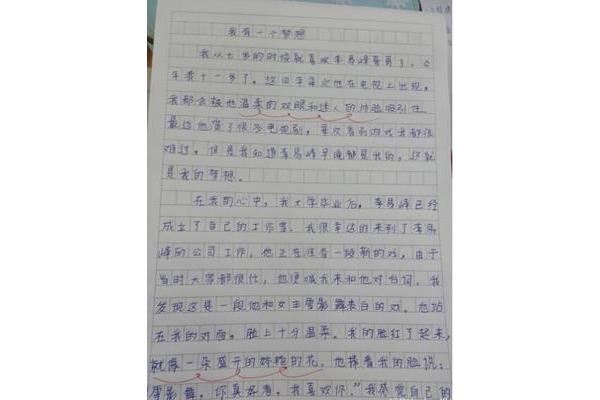 我有一个梦想
我从七岁的时候就喜欢李易峰哥哥了，今
年我十一岁了。这四年每次他在电视上出现，
我都会被他温柔的双眼和迷人的帅脸吸引住
最近他演了很多电视剧，每次看到吻戏我都很
难过，但是我知道李易峰早晚都是我的。这就
是我的梦想。
在我的心中，我大学毕业后，李易峰已经
成立了自己的工作室。我很幸运的来到了李易
峰的公司工作。他正在准备一段新的戏，由于
当时大家都很忙，他便喊我来和他对台词。我
发现这是一段他和女主霍影舞表白的戏。他站
在我的对面，脸上十分温柔。我的脸红了起来，
就像一朵盛开的娇艳的花。他捧着我的脸说：
霍影舞，你真好看，我喜欢你。”我感觉自己的